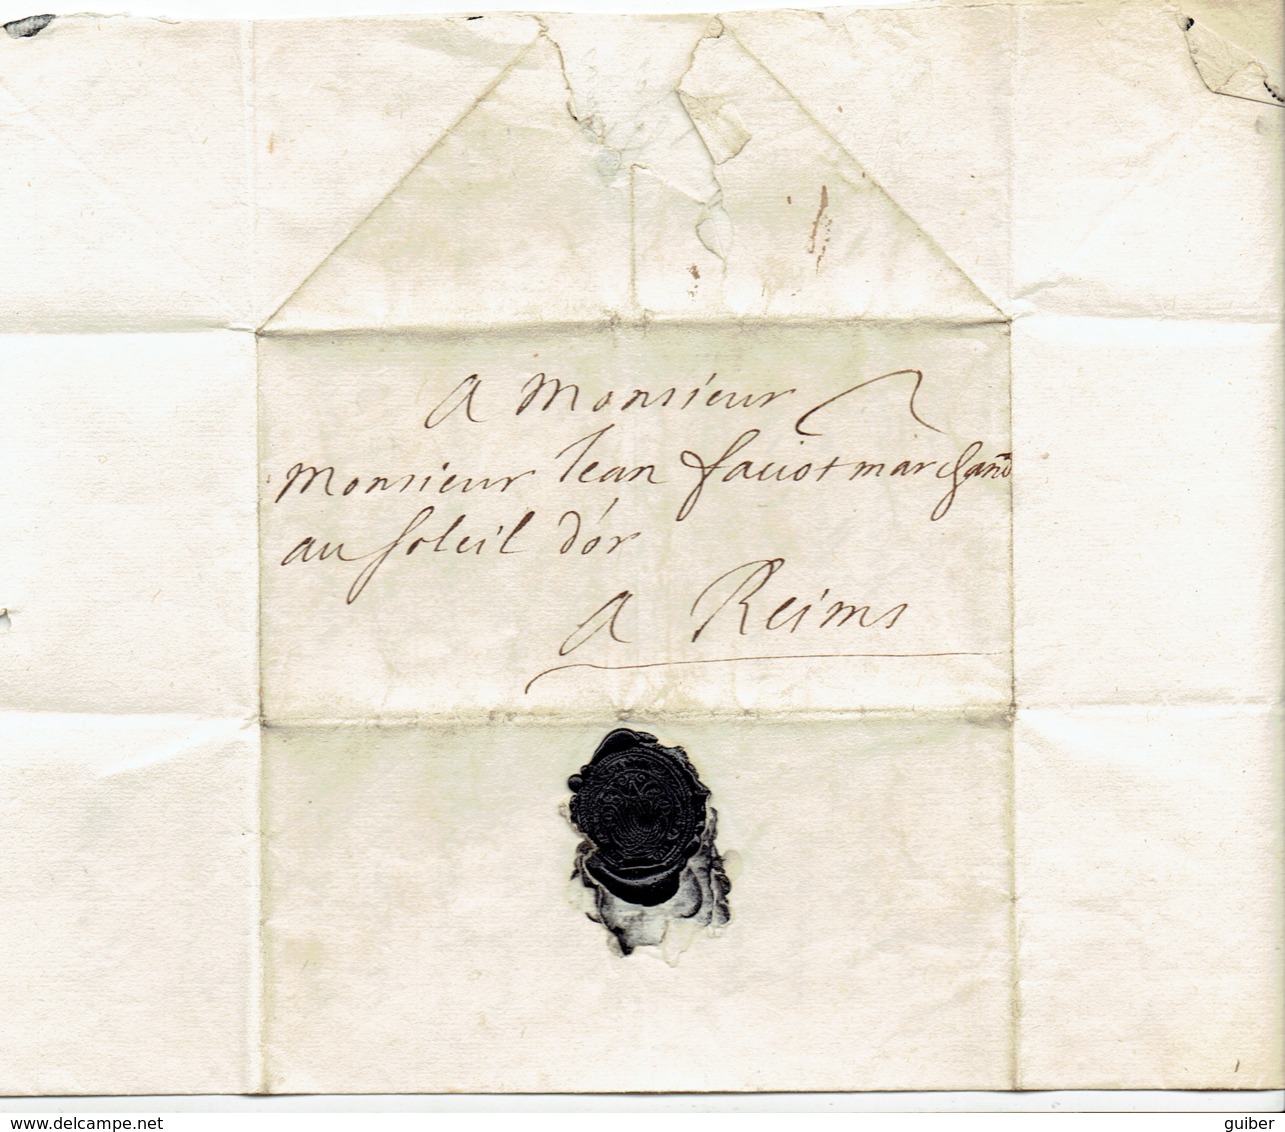 A Monsieur
Monsieur Jean faciot marchand
au soleil d'or
A Reims
www.delcampe.net
guiber